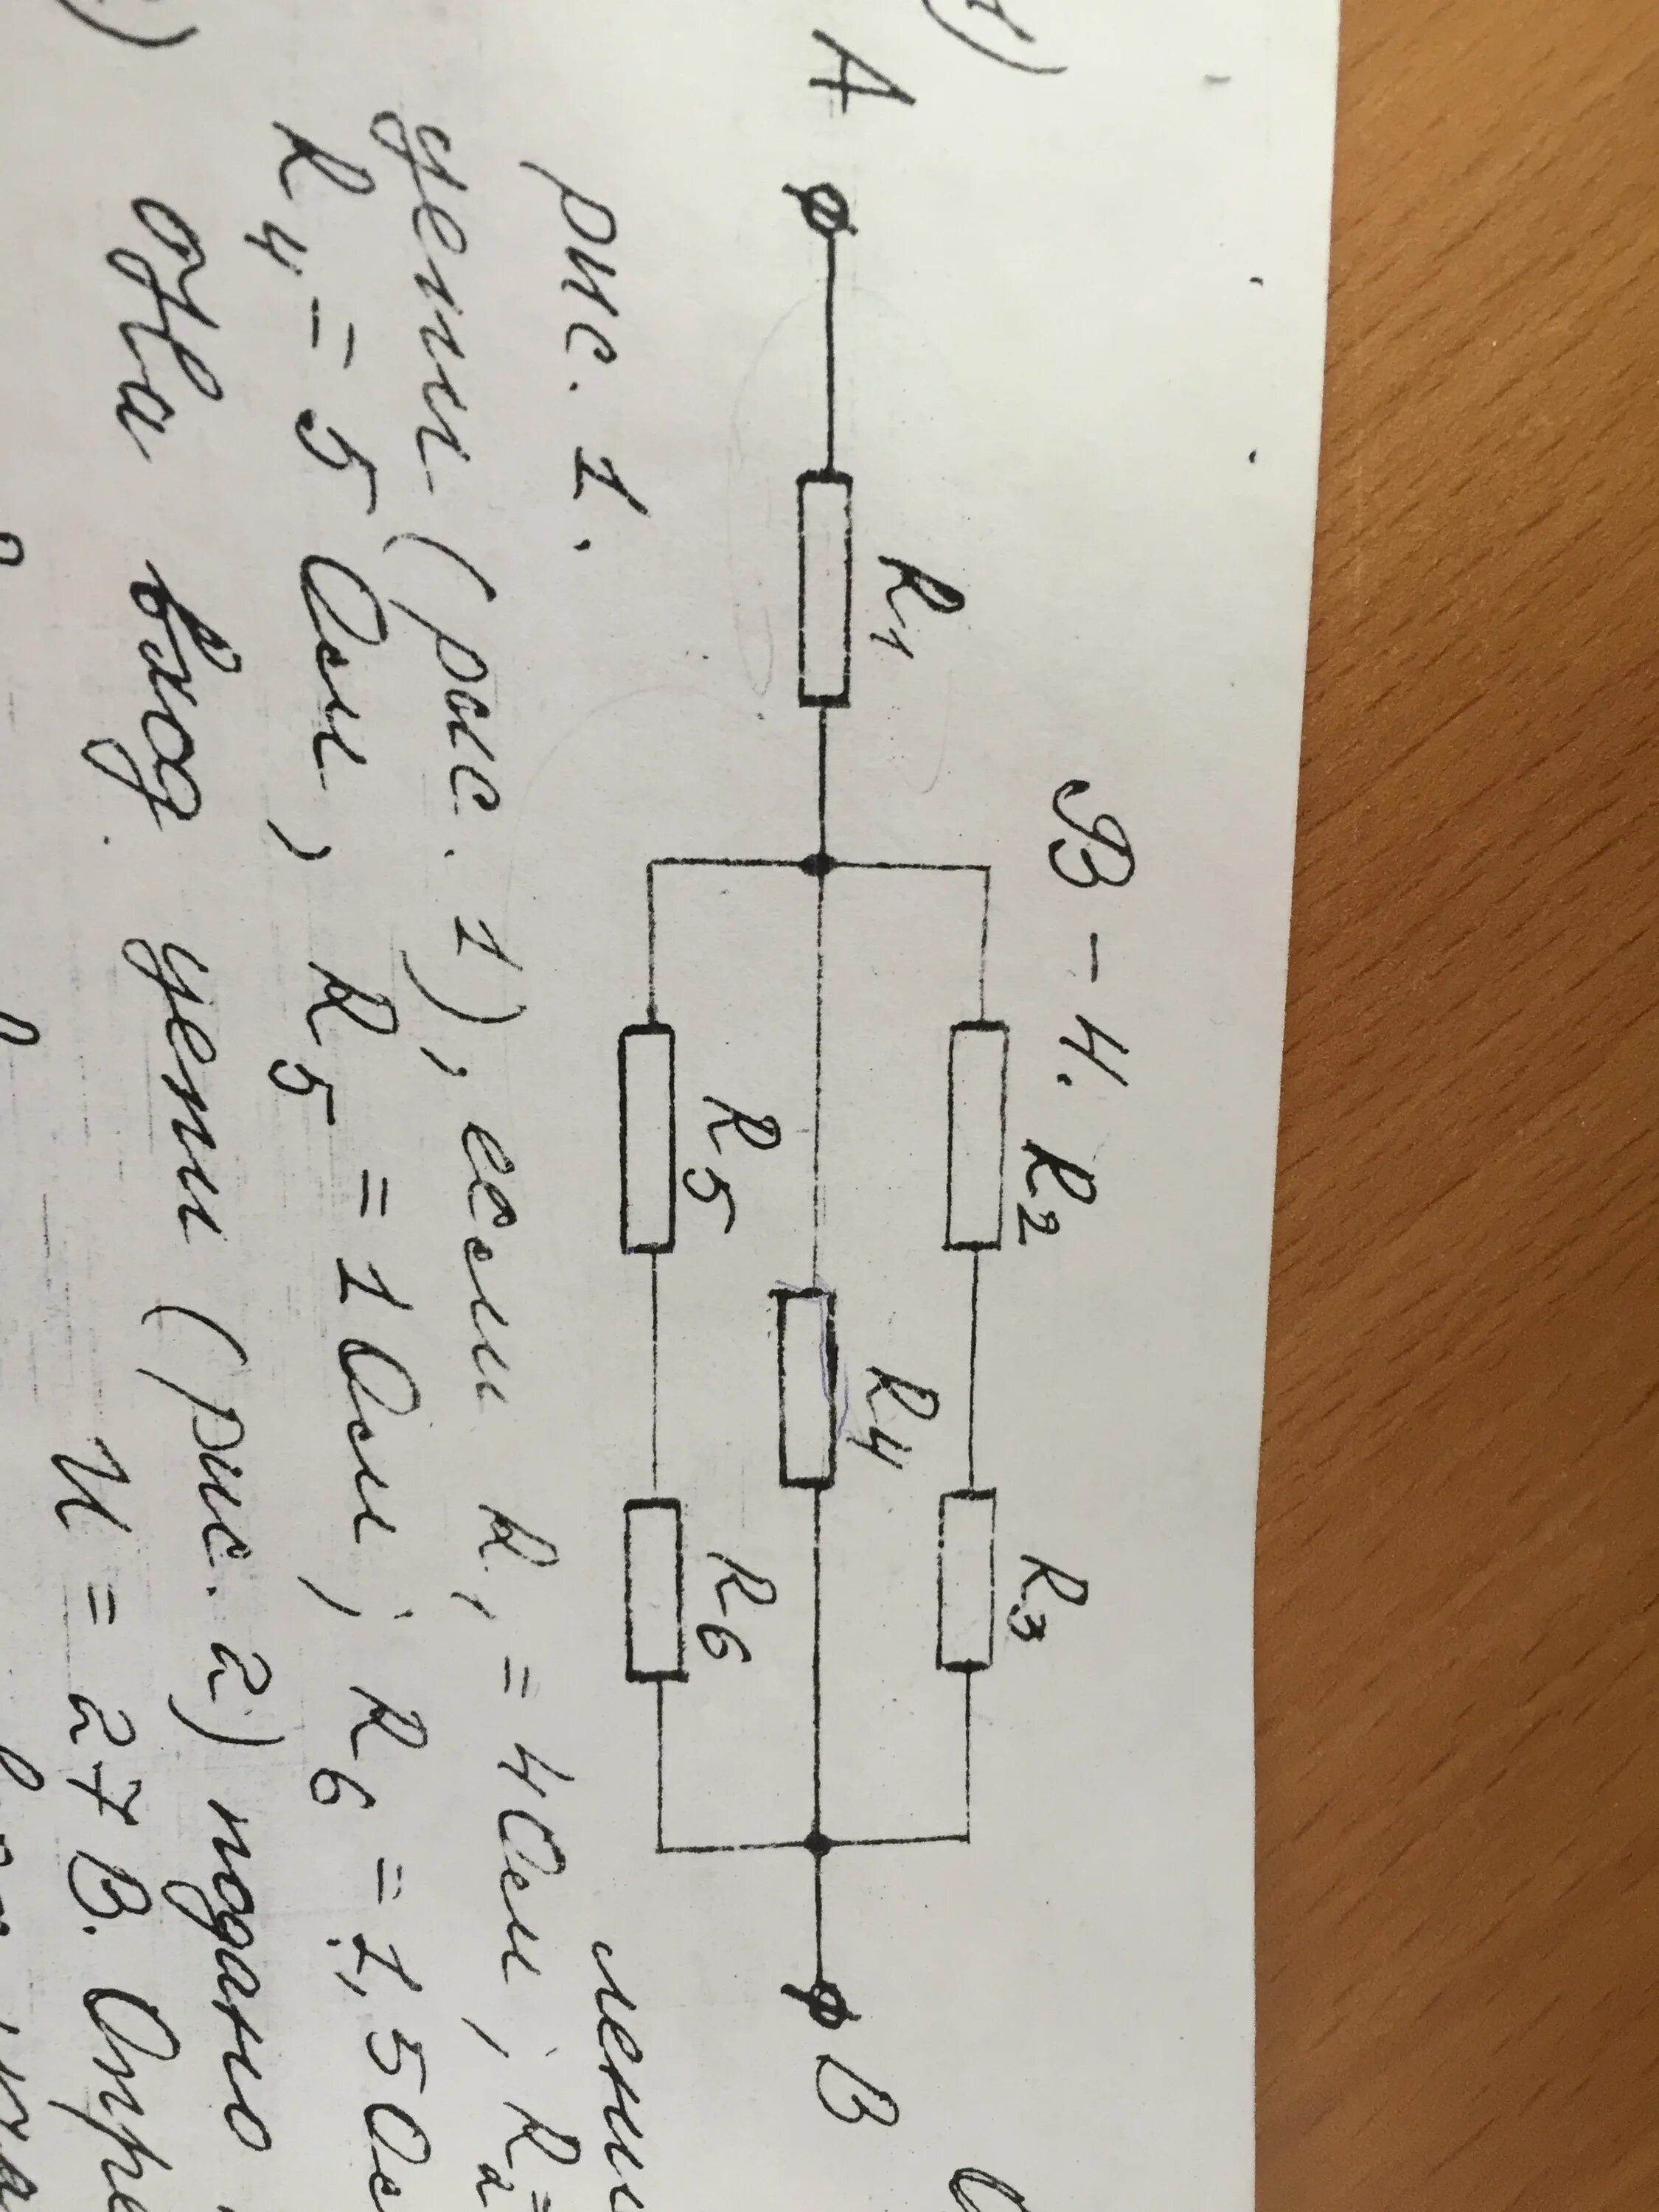 1)
В-4.
R1 R2 R3
A R4 B
R5 R6
рис. 1.
цепи (рис. 1), если R1 = 4Ом; R2=
R4 = 5 Ом, R5 = 1 Ом; R6 = 1,5 Ом
)
На вход цепи (рис. 2) подано
U = 27 В.